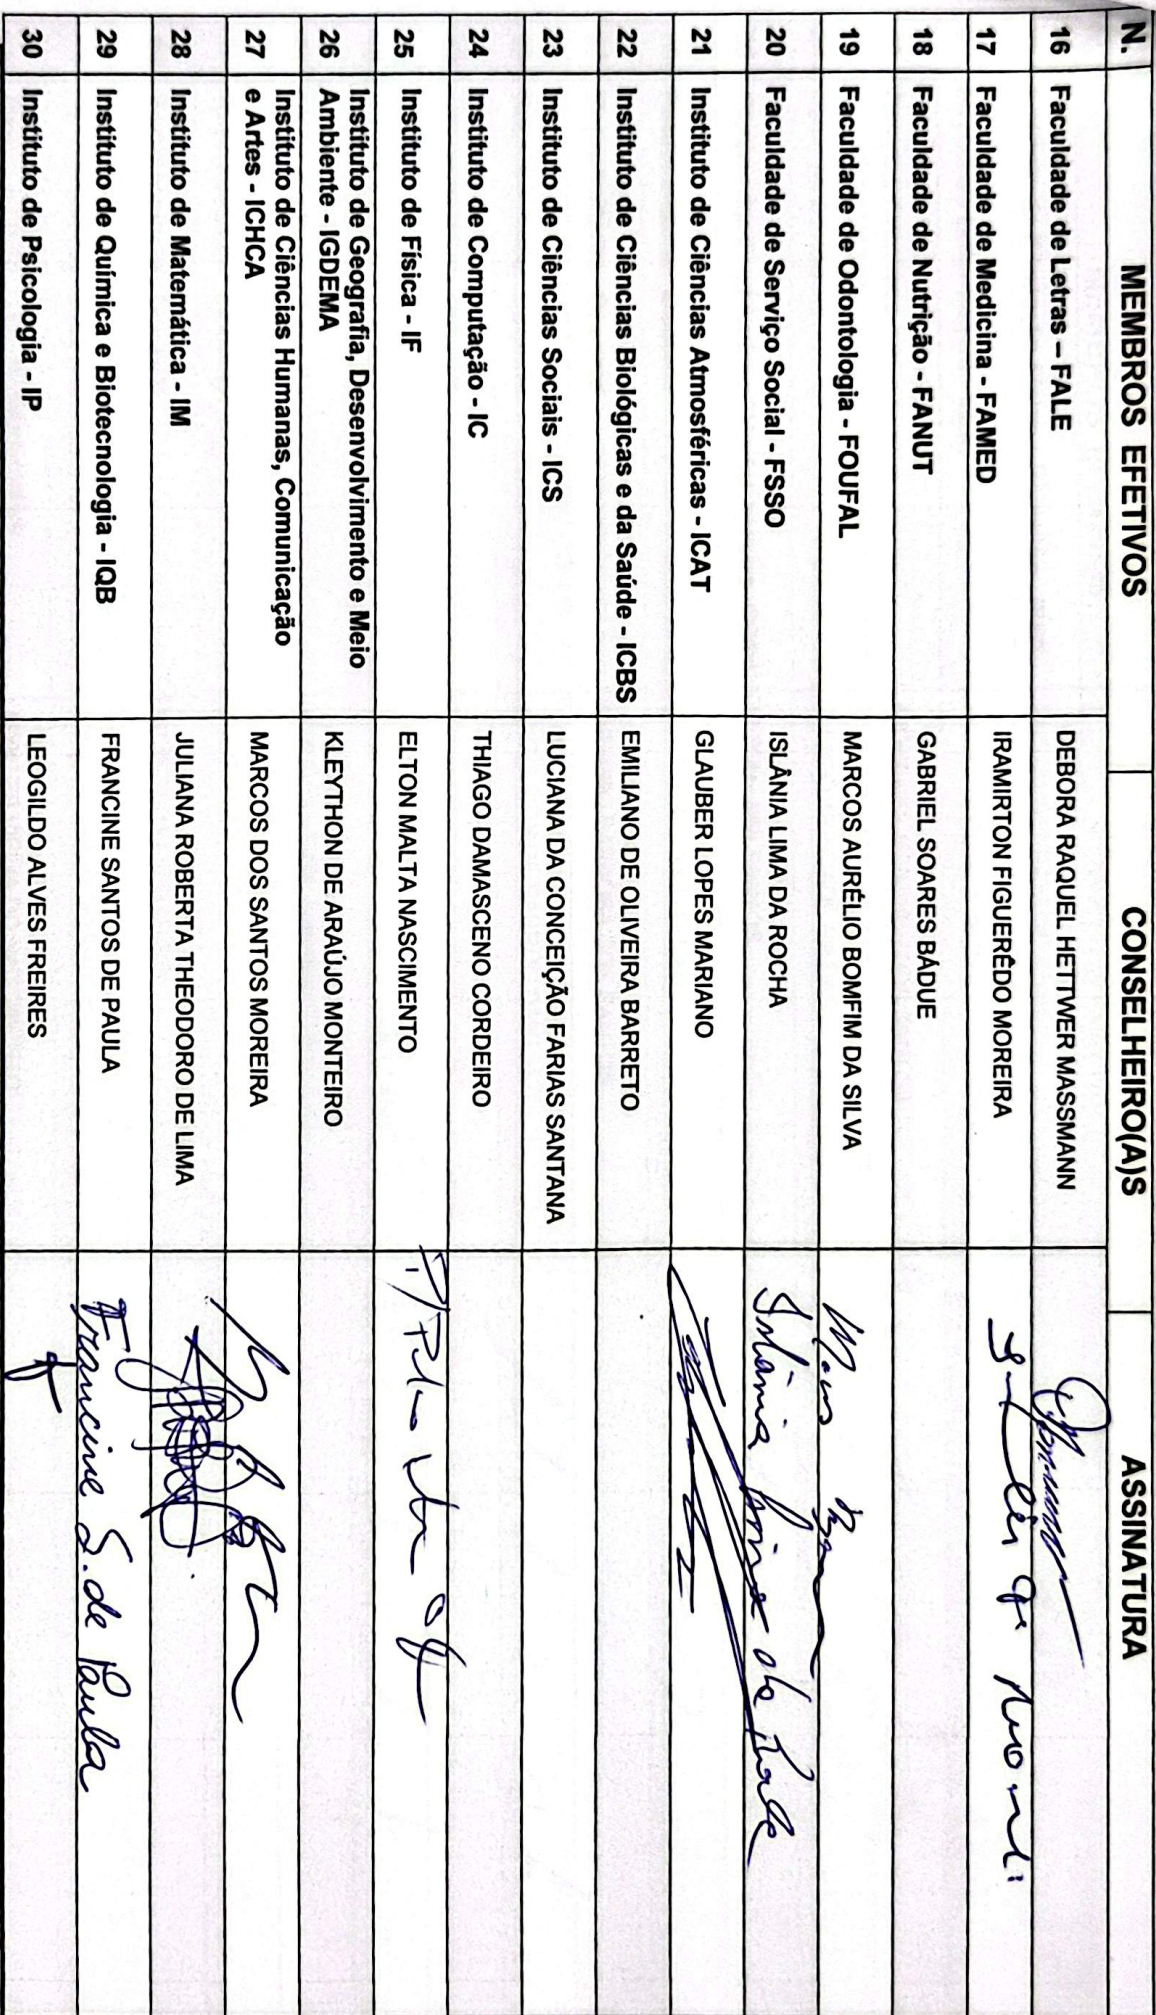 N. MEMBROS EFETIVOS CONSELHEIRO(A)S ASSINATURA
16 Faculdade de Letras – FALE DEBORA RAQUEL HETTWER MASSMANN
17 Faculdade de Medicina - FAMED IRAMIRTON FIGUERÊDO MOREIRA
18 Faculdade de Nutrição - FANUT GABRIEL SOARES BÁDUE
19 Faculdade de Odontologia - FOUFAL MARCOS AURÉLIO BOMFIM DA SILVA
20 Faculdade de Serviço Social - FSSO ISLÂNIA LIMA DA ROCHA Islânia Lima da Rocha
21 Instituto de Ciências Atmosféricas - ICAT GLAUBER LOPES MARIANO
22 Instituto de Ciências Biológicas e da Saúde - ICBS EMILIANO DE OLIVEIRA BARRETO
23 Instituto de Ciências Sociais - ICS LUCIANA DA CONCEIÇÃO FARIAS SANTANA
24 Instituto de Computação - IC THIAGO DAMASCENO CORDEIRO
25 Instituto de Física - IF ELTON MALTA NASCIMENTO
26 Instituto de Geografia, Desenvolvimento e Meio
Ambiente - IGDEMA KLEYTHON DE ARAÚJO MONTEIRO
27 Instituto de Ciências Humanas, Comunicação
e Artes - ICHCA MARCOS DOS SANTOS MOREIRA
28 Instituto de Matemática - IM JULIANA ROBERTA THEODORO DE LIMA
29 Instituto de Química e Biotecnologia - IQB FRANCINE SANTOS DE PAULA Francine S. de Paula
30 Instituto de Psicologia - IP LEOGILDO ALVES FREIRES